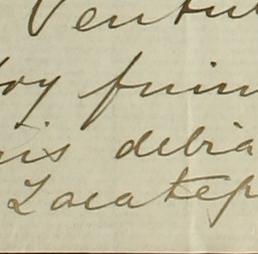 Ventu
oy fuim
is debia
Zacatep